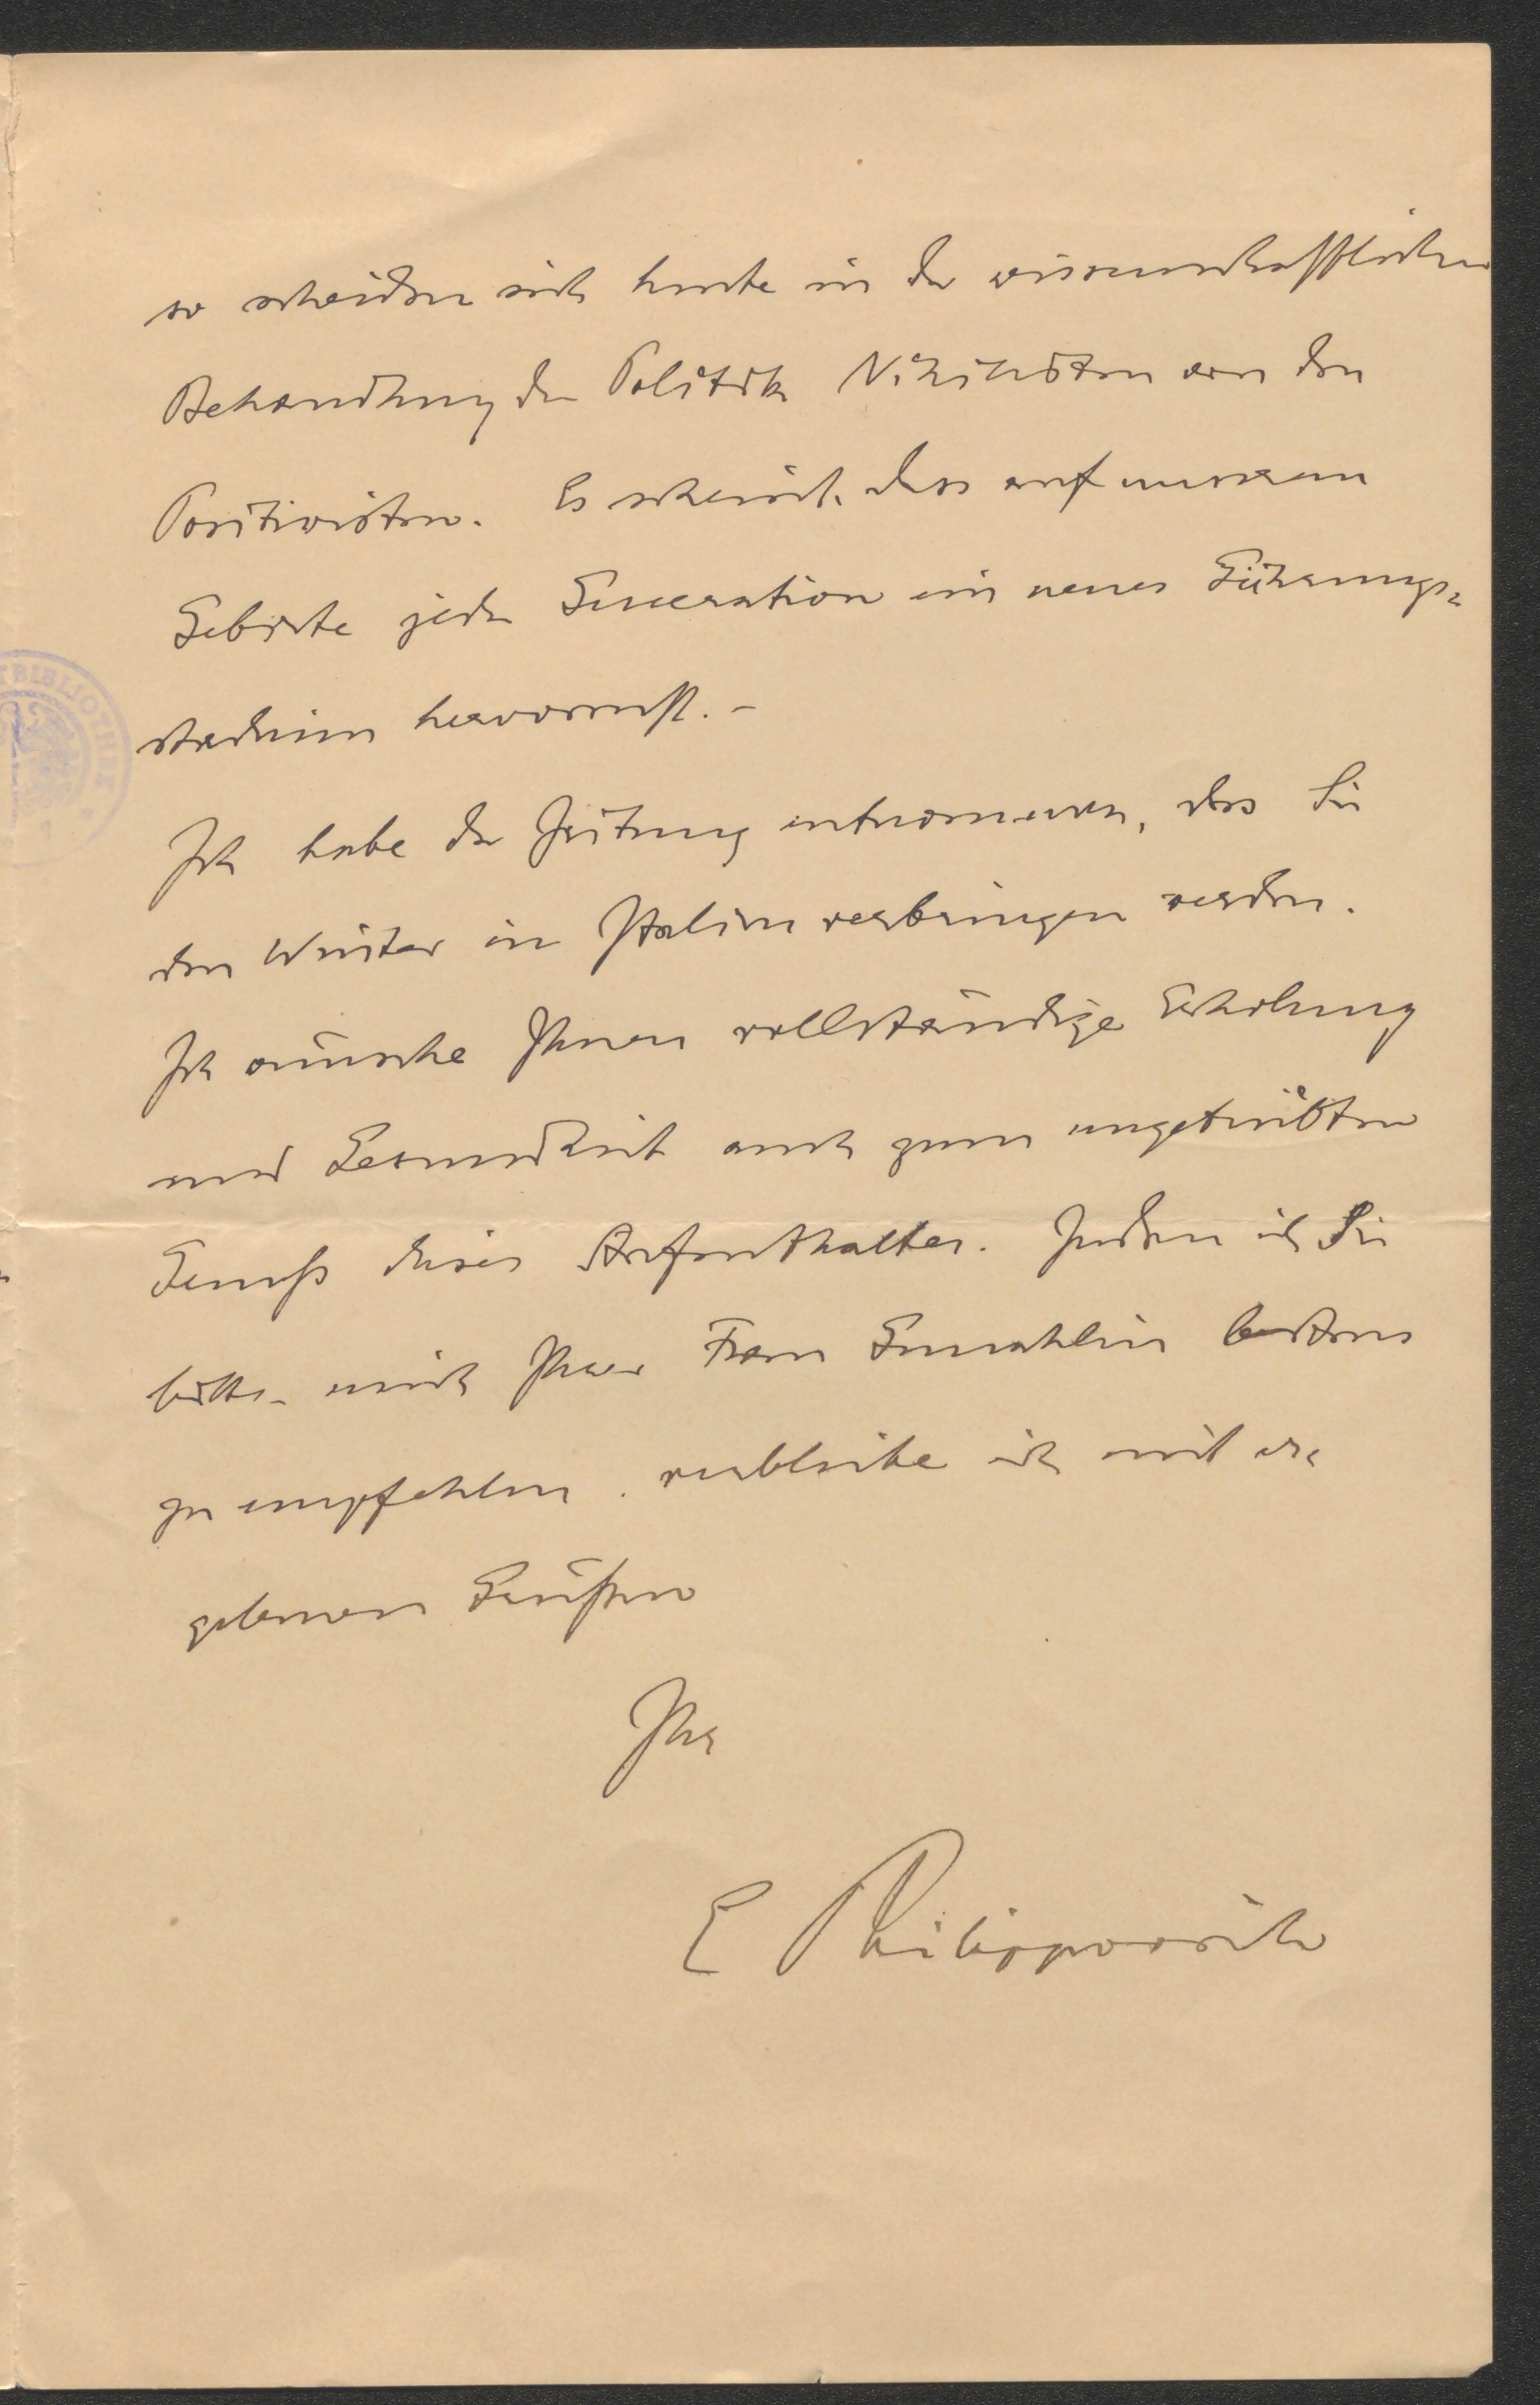 so scheiden sich heute in der wissenschaftlichen
Behandlung der Politik Nihilisten von den
Positivisten. Es scheint, dass auf unserem
Gebiete jede Generation ein neues Gährungs-
stadium hervorruft. –
Ich habe der Zeitung entnommen, dass Sie
den Winter in Italien verbringen werden.
Ich wünsche Ihnen vollständige Erholung
und Gesundheit auch zum ungetrübten
Genuß dieses Aufenthaltes. Indem ich Sie
bitte, mich Ihrer Frau Gemahlin bestens
zu empfehlen, verbleibe ich mit er-
gebenen Grüßen
Ihr
E Philippovich
TBIBLIOTHEK